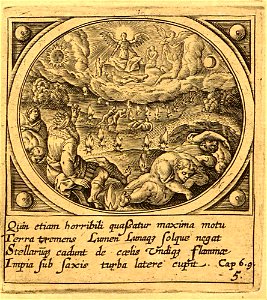 Quin etiam horribili quassatur maxima motu
Terra tremens Lumen Lunaq solque negat
Stellarūq cadunt de cœlis Undiq flammæ
Impia sub saxis turba latere cupit. Cap 6.9
5.